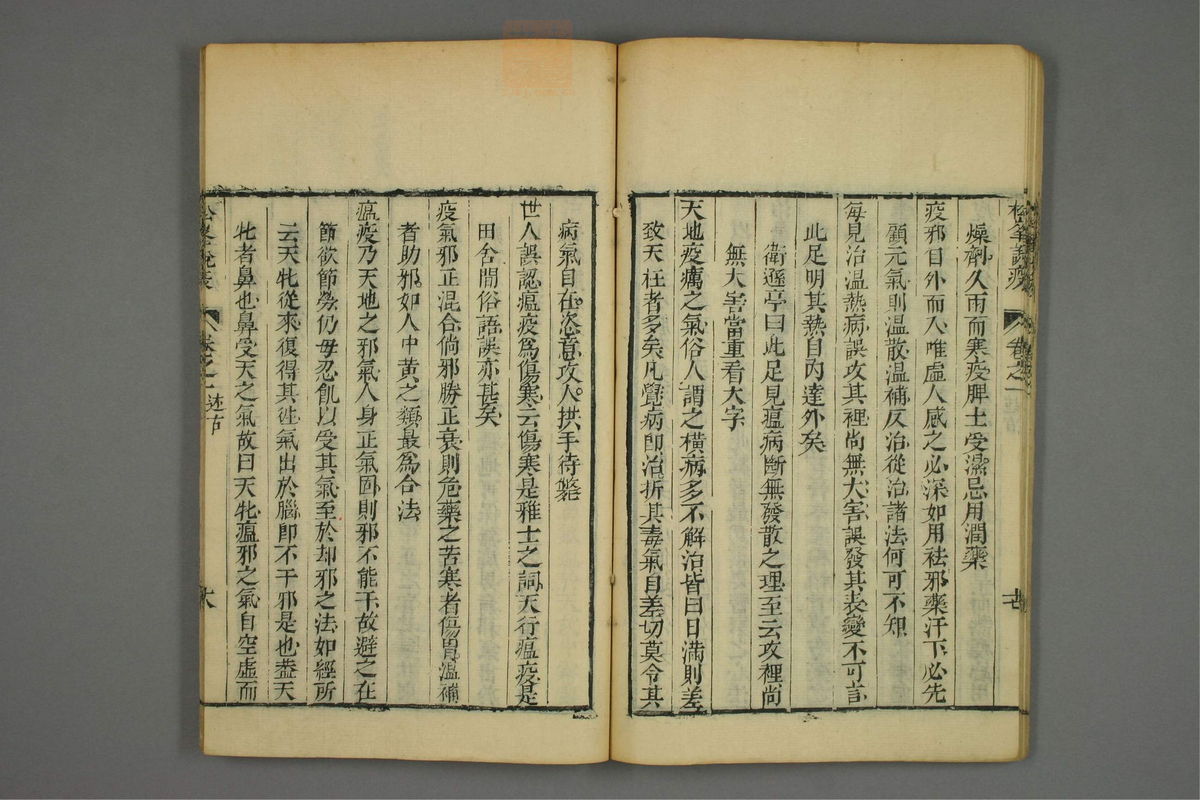 松峯說疫
卷之一
燥劑久雨而寒疫脾土受濕忌用潤藥
疫邪自外而入唯虛人感之必深如用祛邪藥汗下必先
顧元氣則温散温補反治從治諸法何可不知
每見治温熱病誤攻其裡尚無大害誤發其表變不可言
此足明其熱自內達外矣
衛遜亭曰此足見瘟病斷無發散之理至云攻裡尚
無大害當重看大字
天地疫癘之氣俗人謂之橫病多不解治皆曰日滿則差
致夭枉者多矣凡覺病即治折其毒氣自差切莫令其
病氣自在恣意攻人拱手待斃
世人誤認瘟疫爲傷寒云傷寒是雅士之詞天行瘟疫是
田舍間俗語誤亦甚矣
疫氣邪正混合倘邪勝正衰則危藥之苦寒者傷胃温補
者助邪如人中黃之類最爲合法
瘟疫乃天地之邪氣人身正氣固則邪不能干故避之在
節飲節勞仍毋忍飢以受其氣至於却邪之法如經所
云天牝從來復得其徃氣出於腦即不干邪是也葢天
牝者鼻也鼻受天之氣故曰天牝瘟邪之氣自空虛而
松峯說疫
卷之一
述古